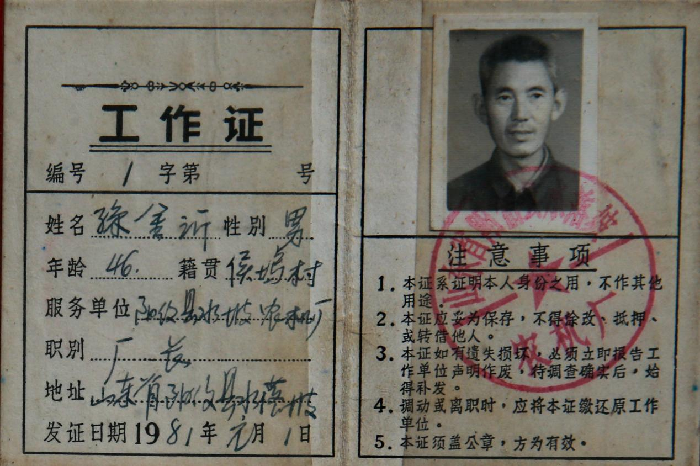 工作证
编号 1 字第 号
姓名 性别 男
年龄 46. 籍贯 村
服务单位 县 农机厂
职别 厂长
地址 山东省 县
发证日期1981年元月1日
注意事项
1. 本证系证明本人身份之用，不作其他
用途。
2. 本证应妥为保存，不得涂改、抵押、
或转借他人。
3. 本证如有遗失损坏，必须立即报告工
作单位声明作废，待调查确实后，始
得补发。
4. 调动或离职时，应将本证缴还原工作
单位。
5. 本证须盖公章，方为有效。
农机厂